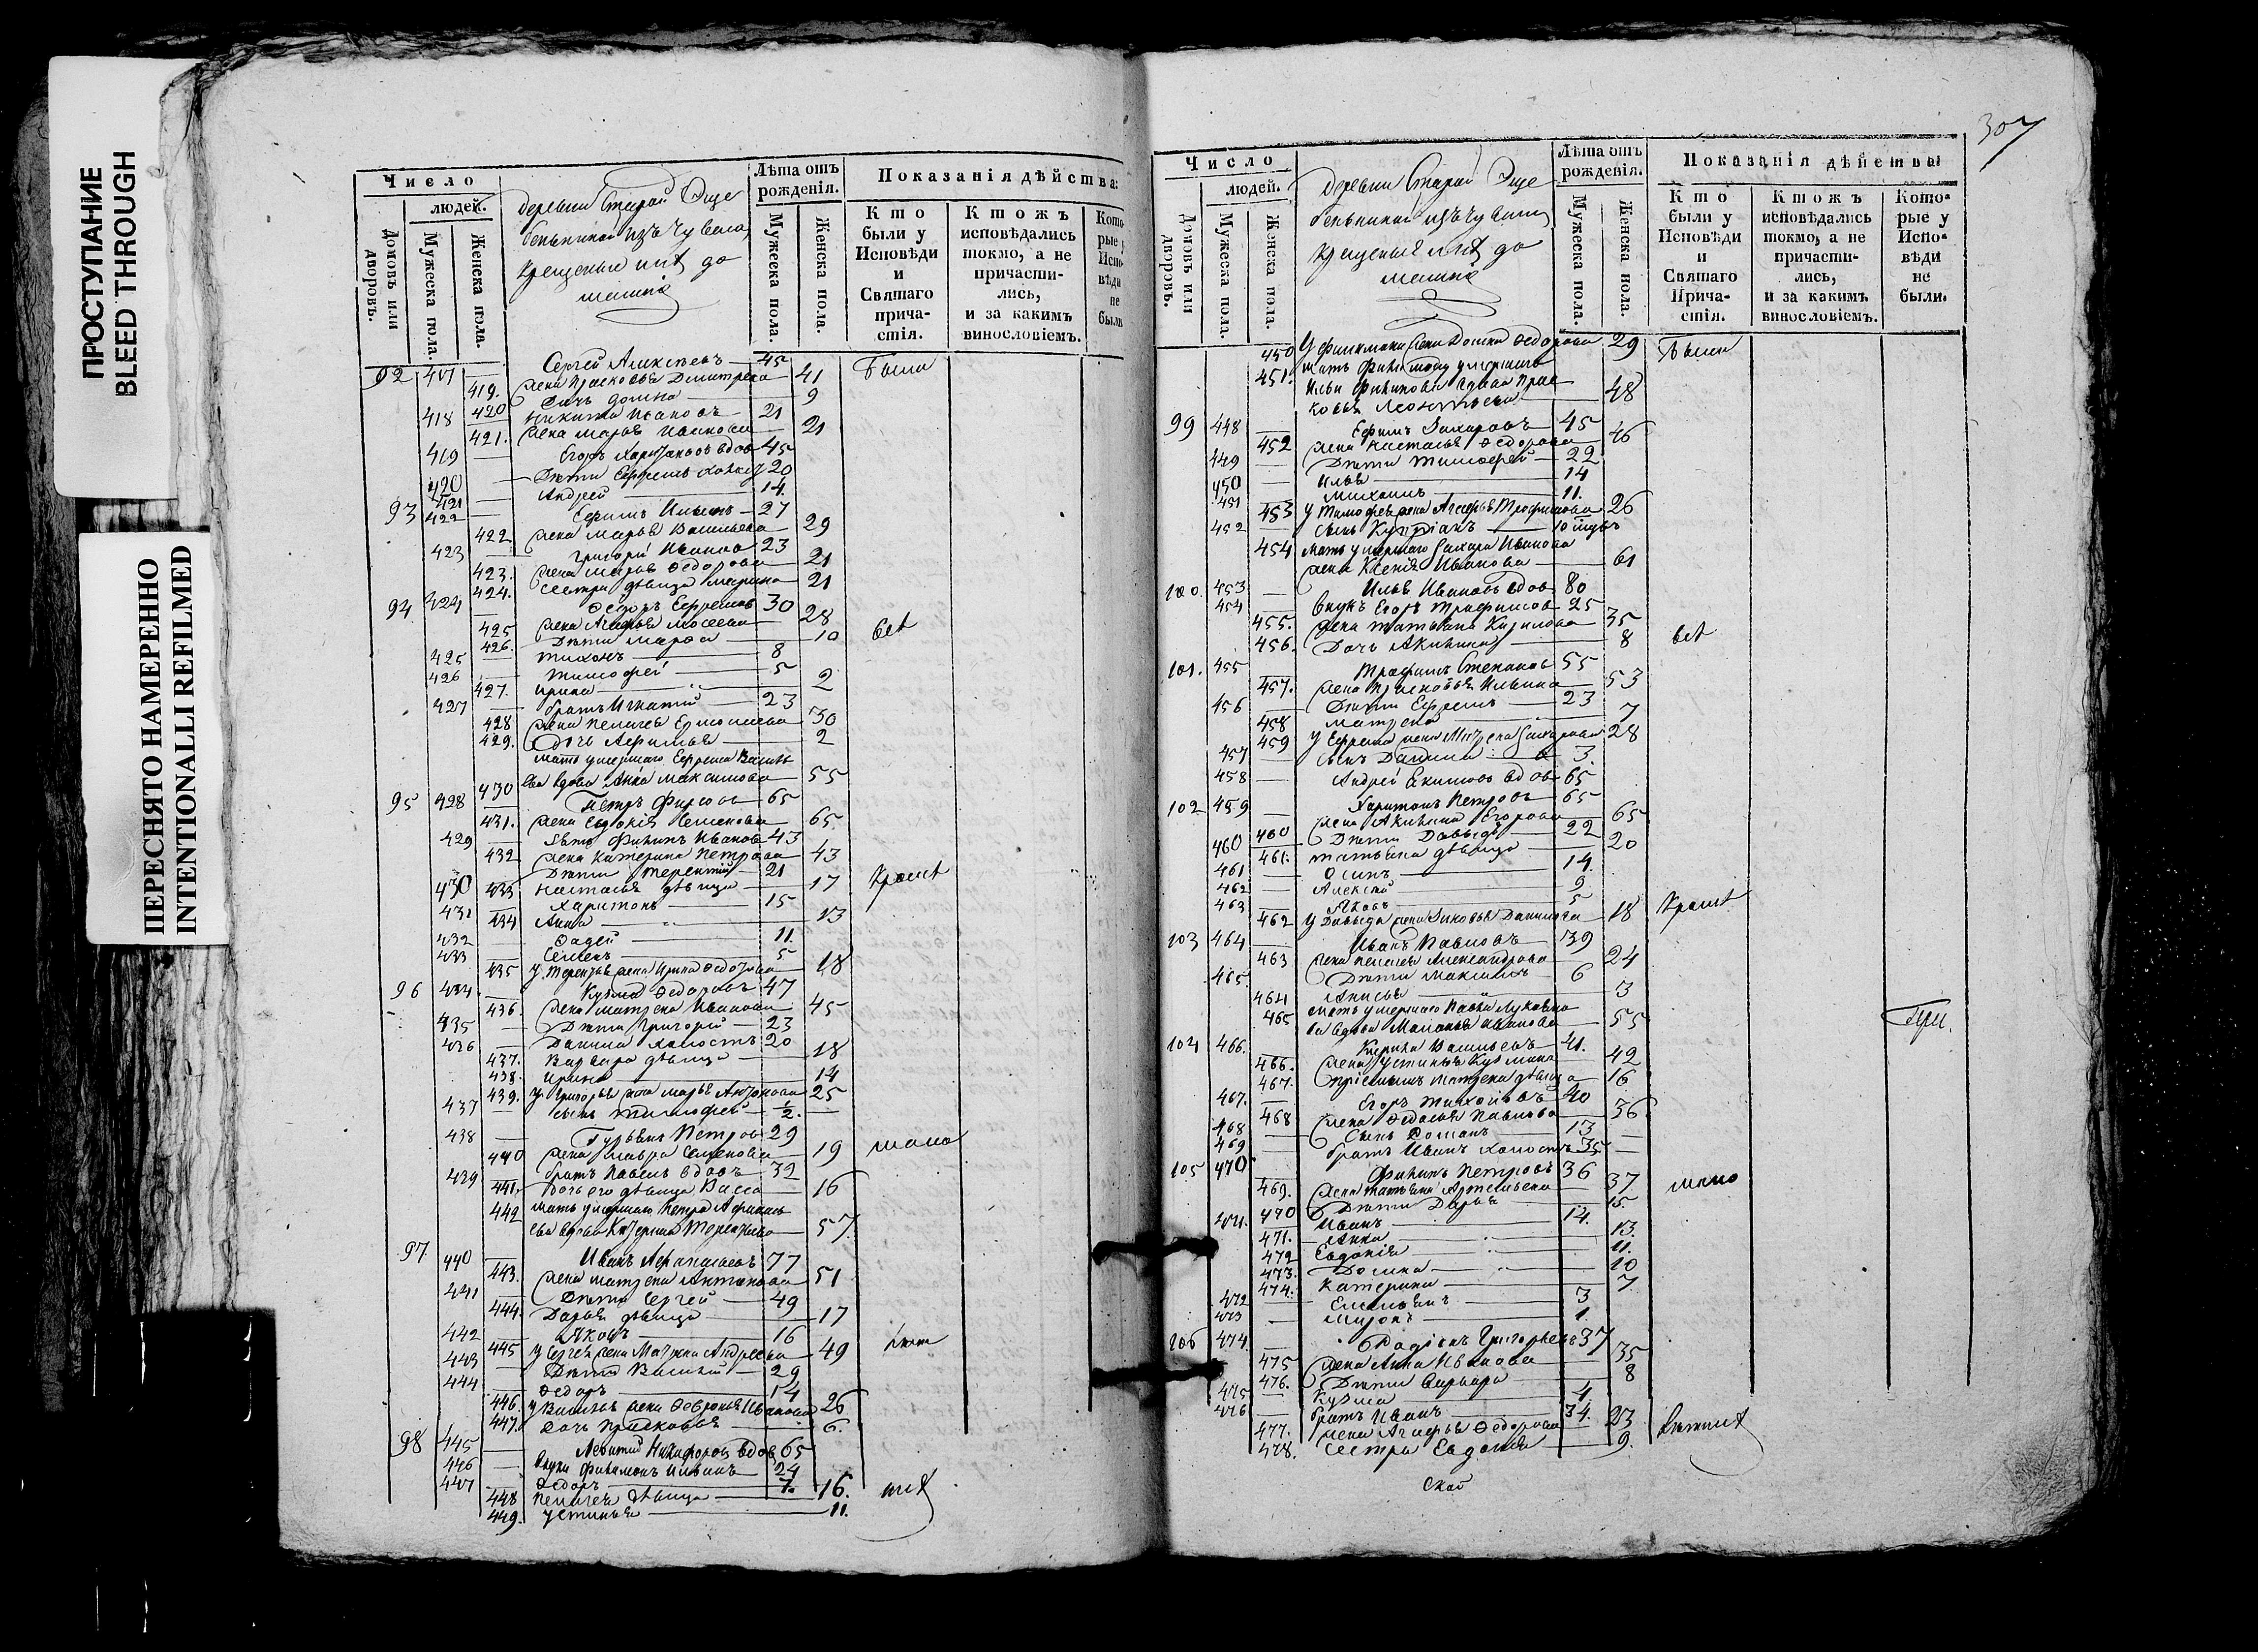 ПРОСТУПАНИЕ
BLEED THROUGH
ПЕРЕСНЯТО НАМЕРЕННО
INTENTIONALLI REFILMED
Число
людей.
Домовъ или дворовъ.
Мужеска пола.
Женска пола.
деревни Старой Эще
бенькиной изъ Чувашъ
Крещеные ихъ до
машнiе
Лѣта отъ рожденія.
Мужеска пола.
Женска пола.
Показанія дѣйства:
Кто были у Исповѣди и Святаго причастія.
Ктожъ исповѣдались токмо, а не причастились, и за какимъ винословіемъ.
92 417 Сергей Алексѣевъ 45 Были
419. жена Прасковья Дмитрева 41
420 дочь Домна 9
418 Никита Ивановъ 21
421. жена Марья Иванова 21
419 Егоръ Харитоновъ вдовъ 45
420 Дѣти Ефремъ холостъ 20
421 Андрей 14.
93 422 Ефимъ Ильинъ 27
422 жена Марья Васильева 29
423 Григорiй Ивановъ 23
423. жена Марья Федорова 21
424. Сестра дѣвица Марина 21
94 424 Федоръ Ефремовъ 30
425 жена Агафья Мосеева 28
426. Дѣти Марфа 10 всѣ
425 Тихонъ 8
426 Тимофей 5
427. Ирина 2
427 братъ Игнатiй 23
428 жена Пелагея Ермолаева 30
429. дочь Афимья 2
мать умершаго Ефрема Василь
430 ева вдова Анна Максимова 55
95 428 Петръ Фирсовъ 65
431. жена Евдокiя Семенова 65
429 зять Филипъ Ивановъ 43
432 жена Катерина Петрова 43
430 Дѣти Терентiй 21
433 Настасья дѣвица 17 Кромѣ
431 Харитонъ 15
434 Анна 13
432 Фадей 11.
433 Семенъ 5
435 у Терентья жена Ирина Федотова 18
96 434 Кузма Федоровъ 47
436. жена Матрена Иванова 45
435 Дѣти Григорiй 23
436 Данила холостъ 20
437. Варвара дѣвица 18
438. Ирина 14
439. у Григорья жена Марья Антонова 25
437 сынъ Тимофей ½.
438 Гурьянъ Петровъ 29
440 жена Мавра Семенова 19 мало
439 братъ Павелъ вдовъ 32
441. дочь его дѣвица Васса 16
442 мать умершаго Петра Афанась
ева вдова Катерина Терентьева 57
97 440 Иванъ Афанасьевъ 77
443. жена Матрена Антонова 51
441 Дѣти Сергей 49
444. Дарья дѣвица 17
442 Яковъ 16
445 у Сергея жена Матрена Андреева 49
443 Дѣти Василiй 29
444 Федоръ 14
446. у Василья жена Февронья Иванова 26
447. дочь Прасковья 6.
98 445 Леонтiй Никифоровъ вдовъ 65
446 внуки Филимонъ Ильинъ 24
447 Федоръ 7.
448 Пелагея дѣвица 16.
449. Устинья 11.
307
Число
людей.
Домовъ или дворовъ.
Мужеска пола.
Женска пола.
деревни Старой Эще
бенькиной изъ Чувашъ
Крещеные ихъ до
машнiе
Лѣта отъ рожденія.
Мужеска пола.
Женска пола.
Показанія дѣйства
Кто были у Исповѣди и Святаго Причастія.
Ктожъ исповѣдались токмо, а не причастились, и за какимъ винословіемъ.
Которые у Исповѣди не были.
450 у Филимона жена Домна Федорова 29 Были
451. мать Филимону умершаго
Ильи Филипова вдова Прас
ковья Леонтьева 48
99 448 Ефимъ Захаровъ 45
452 жена Настасья Федорова 46
449 Дѣти Тимофей 22
450 Илья 14
451 Михаилъ 11.
453 у Тимофея жена Агафья Трофимова 26
452 сынъ Купрiанъ 10
454 мать умершаго Захара Иванова
жена Ксенiя Иванова 61
100. 453 Илья Ивановъ вдовъ 80
454 внукъ Егоръ Трофимовъ 25
455. жена Татьяна Кирилова 35
456. Дочь Акилина 8 всѣ
101. 455 Трофимъ Степановъ 55
457. жена Прасковья Ильина 53
456 Дѣти Ефремъ 23
458 Матрена 7
459 у Ефрема жена Матрена Захарова 28
457 сынъ Данила 3.
458 Андрей Екимовъ вдовъ 65
102 459 Харитонъ Петровъ 65
460 жена Акилина Егорова 65
460 Дѣти Давыдъ 22
461. Татьяна дѣвица 20
461 Осипъ 14.
462 Алексѣй 9
463 Яковъ 5
462 у Давыда жена Зиновья Данилова 18 Кромѣ
103 464 Иванъ Павловъ 39
463 жена Пелагея Александрова 24
465 Дѣти Максимъ 6
464 Анисья 3
465 мать умершаго Павла
ва вдова Маланья Иванова 55
104 466. Кирила Васильевъ 41.
466. жена Устинья Кузмина 42
467. прiемышъ Матрена дѣвица 16
467. Егоръ Тихоновъ 40
468 жена Федосья Павлова 36
468 Сынъ Романъ 13
469 братъ Иванъ холостъ 35
105 470 Филипъ Петровъ 36
469. жена Татьяна Артемьева 37 мало
470 Дѣти Дарья 15.
471. Иванъ 14.
471. Анна 13.
472 Евдокiя 11.
473. Домна 10
474. Катерина 7.
472 Емельянъ 3
473 Миронъ 1.
106 474. Родiонъ Григорьевъ 37
475 жена Анна Иванова 35
476. Дѣти Варвара 8
475 Кузма 4
476 братъ Иванъ 34.
477. жена Агафья Федорова 23
478. сестра Евдокiя 9.
ской